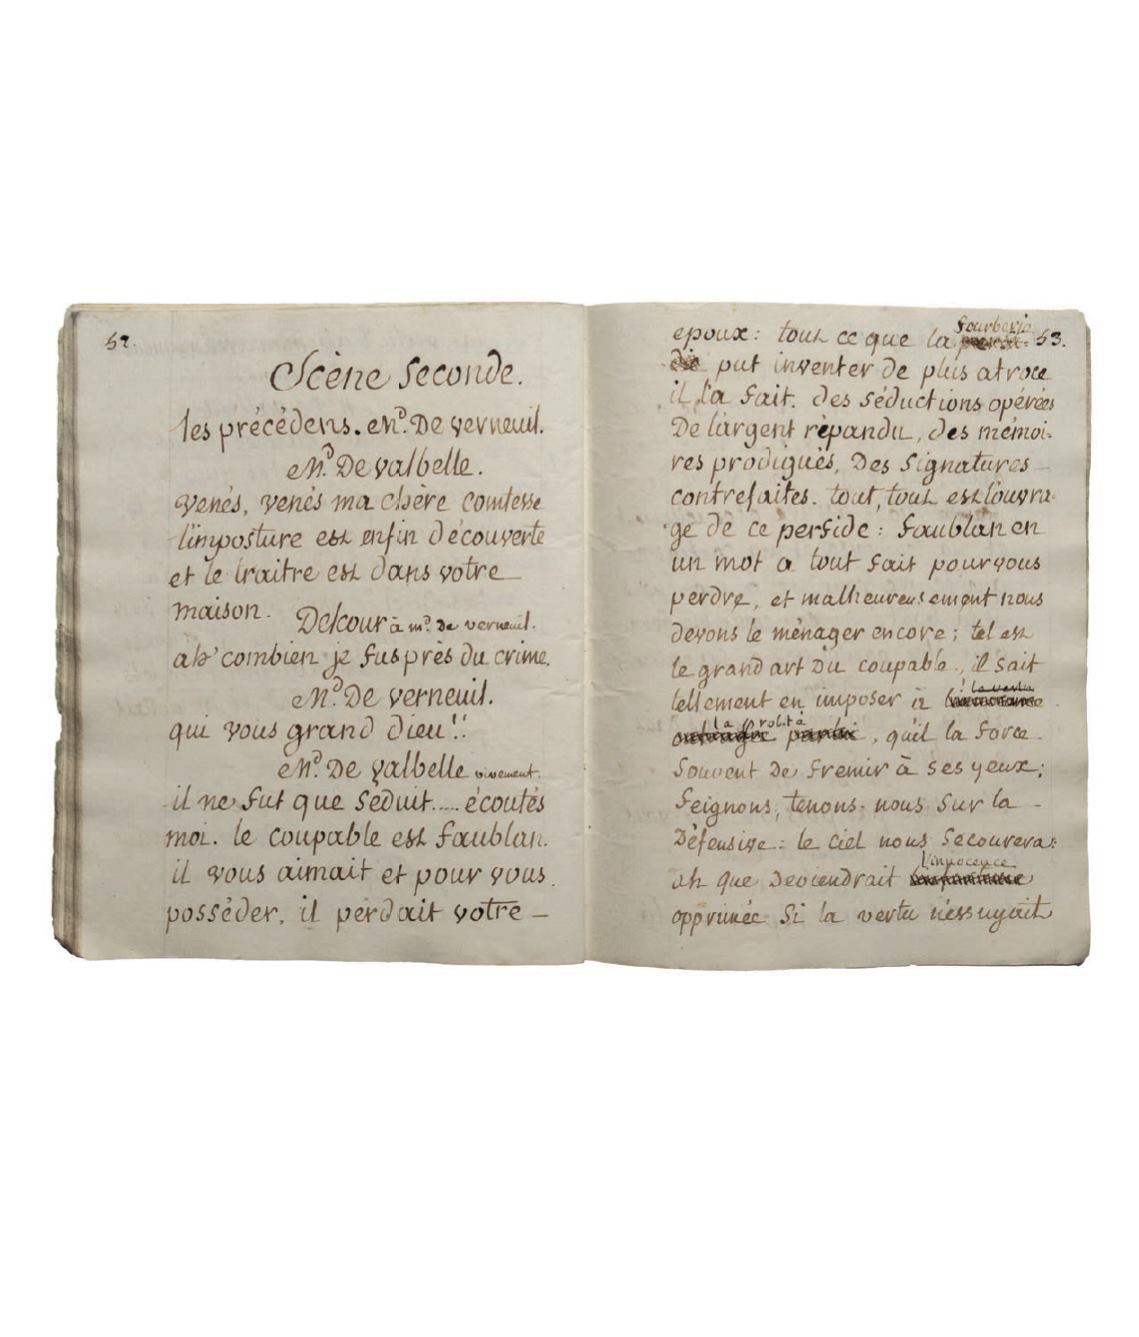 52.
Scène Seconde.
les précédens. Md. De verneuil.
Md. De valbelle.
venés, venés ma chère comtesse
l'imposture est enfin découverte
et le traitre est dans votre
maison.
Delcour à md. de verneuil.
ah' combien je fus près du crime.
Md. De verneuil.
qui vous grand dieu!!
Md. De valbelle vivement.
il ne fut que séduit..... écoutés
moi. le coupable est faublan.
il vous aimait et pour vous
posséder, il perdait votre –
53.
epoux: tout ce que la fourberie
put inventer de plus atroce
il l'a fait. des séductions opérées
De l'argent répandu, des mémoi-
res prodigués, Des Signatures
contrefaites. tout, tout est l'ouvra-
ge de ce perfide: faublan en
un mot a tout fait pour vous
perdre, et malheureusement nous
devons le ménager encore; tel est
le grand art Du coupable, il sait
tellement en imposer à la vertu
la probité, qu'il la force
Souvent de fremir à ses yeux;
feignons, tenons-nous sur la –
Défensive: le ciel nous secourera:
ah que deviendrait l'innocence
opprimée si la vertu n'essuyait